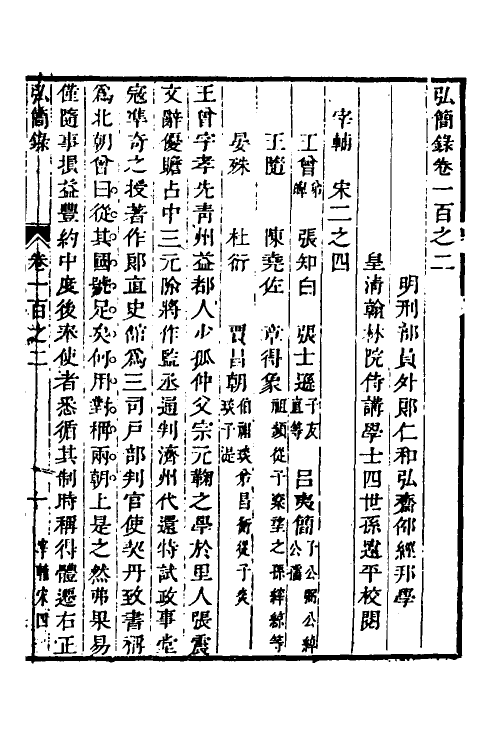 弘簡錄卷一百之二
明刑部員外郎仁和弘齋邵經邦學
皇清翰林院侍講學士四世孫遠平校閱
宰輔 宋二之四
王曾 張知白 張士遜子友直等 呂夷簡子公弼公綽公孺
王隨 陳堯佐 章得象
晏殊 杜衍 賈昌朝
王曾字孝先青州益都人少孤仲父宗元鞠之學於里人張震
文辭優贍占中三元除將作監丞通判濟州代還特試政事堂
寇準奇之授著作郎直史館為三司戶部判官使契丹致書稱
為北朝曾曰從其國號足矣何用對稱兩朝上是之然弗果易
僅隨事損益豐約中度後奉使者悉循其制時稱得體遷右正
弘簡錄 卷一百之二 宰輔宋四